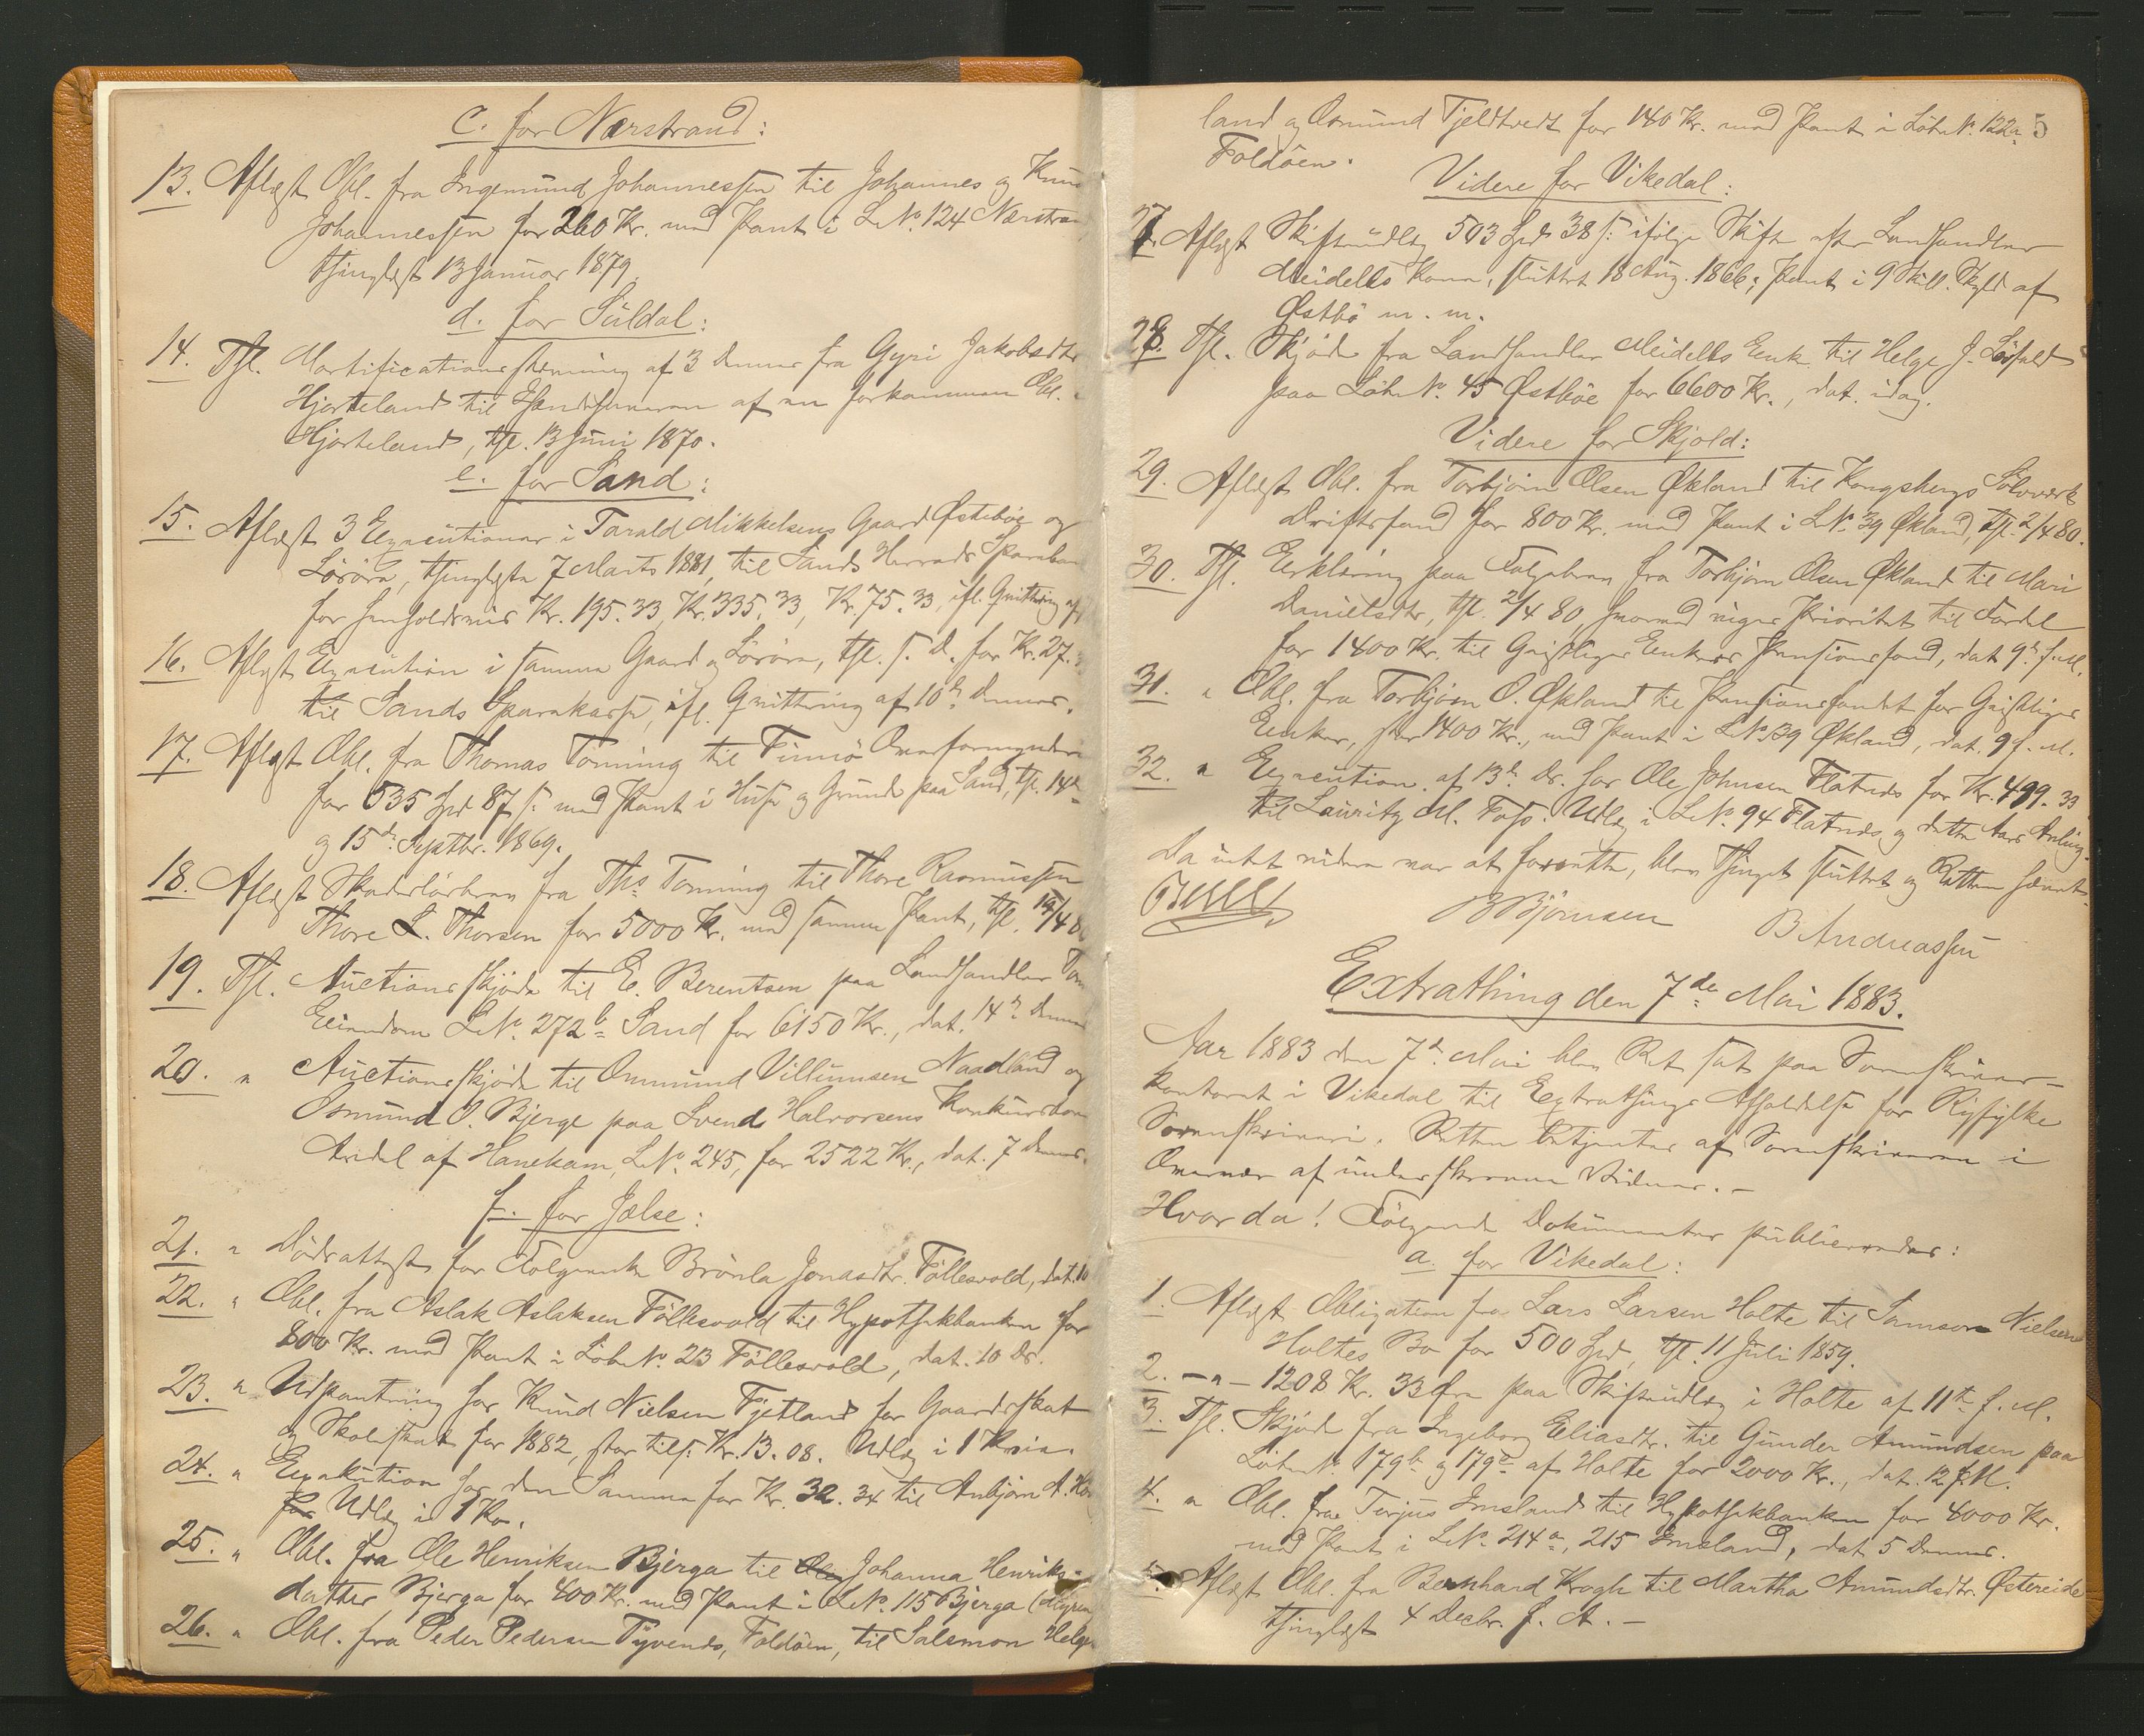 c. for Nærstrand:
13. Aflæst Obl. fra Ingemund Johannessen til Johannes og Knud
Johannessen for 260 Kr. med Pant i L.No. 124 Nærstrand
thinglæst 13 Januar 1879.
d. for Suldal:
14. Thl. Mortificationsstevning af 3 dennes fra Gyri Jakobsdtr
Hjorteland til Ihændehaveren af en forkommen Obl. i
Hjorteland, thl. 13 Juni 1870.
e. for Sand:
15. Aflæst 3 Executioner i Tarald Mikkelsens Gaard Østebøe og
Lösöre, thinglæste 7 Marts 1881, til Sands Herreds Sparebank
for henholdsvis Kr. 195.33, Kr. 335.33, Kr. 75.33, ifl. Qvittering af
16. Aflæst Execution i samme Gaard og Lösöre, thl. s. D. for Kr. 27.
til Sands Sparekasse, ifl. Qvittering af 10de dennes.
17. Aflæst Obl. fra Thomas Tönning til Finnö Overformynderi
for 535 Spd 87 s. med Pant i Huse og Grunde paa Sand, thl. 14de
og 15de Septbr. 1869.
18. Aflæst Skadeslösbrev fra Ths. Tonning til Thore Rasmussen
Thore L. Thorsen for 5000 Kr. med samme Pant, thl.
19. Thl. Auctionsskjöde til E. Berentsen paa Landhandler
Eiendom L.No. 272b Sand for 6150 Kr., dat. 14de dennes
20. " Auctionsskjöde til Ommund Villumsen Naadland og
Osmund O. Bjerge paa Svend Halvorsens Konkursbos
Andel af Hanekam, L.No. 245, for 2522 Kr., dat. 7 dennes.
f. for Jelse:
21. " Dödsattest for Folgeenke Brönla Jonasdtr. Föllesvold, dat. 10
22. " Obl. fra Aslak Aslaksen Föllesvold til Hypothekbanken for
800 Kr. med Pant i Löbe No. 23 Föllesvold, dat. 10 ds.
23. " Udpantning hos Knud Nielsen Fjetland for Gaardsskat
og Skoleskat for 1882, stor tils. Kr. 13.08. Udlæg i 1 Kvie.
24. " Exekution hos den Samme for Kr. 32.34 til Anbjörn A.
for Udlæg i 1 Ko.
25. " Obl. fra Ole Henriksen Bjerga til Johanna Henriks-
datter Bjerga for 400 Kr. med Pant i L.No. 115 Bjerga
26. " Obl. fra Peder Pedersen Tyvends, Foldöen, til Salemon Helge
land og Osmund Tjeldtvedt for 140 Kr. med Pant i Löbe No. 122a 5
Foldöen.
Videre for Vikedal:
27. Aflæst Skifteudlæg 503 Spd 38 s. ifölge Skifte efter Landhandler
Meidells Kone, sluttet 18 Aug. 1866; Pant i 9 Skill. Skyld af
Østbö m. m.
28. Thl. Skjöde fra Landhandler Meidells Enke til Helge J.
paa Löbe No. 45 Østböe for 6600 Kr., dat. idag.
Videre for Skjold:
29. Aflæst Obl. fra Torbjörn Olsen Økland til Kongsbergs Sölvværks
Driftsfond for 800 Kr. med Pant i L.No. 39 Økland, thl. 2/4 80.
30. Thl. Erklæring paa Folgebrev fra Torbjörn Olsen Økland til Mari
Danielsdtr, thl. 2/4 80, hvorved viges Prioritet til Fordel
for 1400 Kr. til Geistlige Enkers Pensionsfond, dat. 9de f. M.
31. " Obl. fra Torbjörn O. Økland til Pensionsfondet for Geistlige
Enker, stor 1400 Kr., med Pant i L.No. 39 Økland, dat. 9 f. M.
32. " Execution af 13de ds. hos Ole Johnsen Flatnes for Kr. 499.33
til Lauritz M. Foss. Udlæg i L.No. 94 Flatnes og dette Aars Avling.
Da intet videre var at foretatte, blev Thinget sluttet og Retten hævet.
BBjörnsen
B Andreassen
Extrathing den 7de Mai 1883.
Aar 1883 den 7de Mai blev Ret sat paa Sorenskriver-
kontoret i Vikedal til Extrathings Afholdelse for Ryfylke
Sorenskriveri. Retten betjentes af Sorenskriveren i
Overvær af underskrevne Vidner. -
Hvorda! Fölgende Dokumenter publiceredes:
a. for Vikedal:
1. Aflæst Obligation fra Lars Larsen Holte til Samson Nielsen
Holtes Bo for 500 Spd, thl. 11 Juli 1859.
2. - " - 1208 Kr. 33 Øre paa Skifteudlæg i Holte af 11te f. M.
3. Thl. Skjöde fra Ingeborg Eliasdtr. til Gunder Amundsen paa
Löbe No. 179b og 179c af Holte for 2000 Kr., dat. 12 f. M.
4. " Obl. fra Terjus Imsland til Hypothekbanken for 4000 Kr.
med Pant i L.No. 214a, 215 Imsland, dat. 5 dennes.
5. Aflæst Obl. fra Bernhard Krogh til Martha Amundsdtr. Østereide
thinglæst 4 Decbr. f. A. -